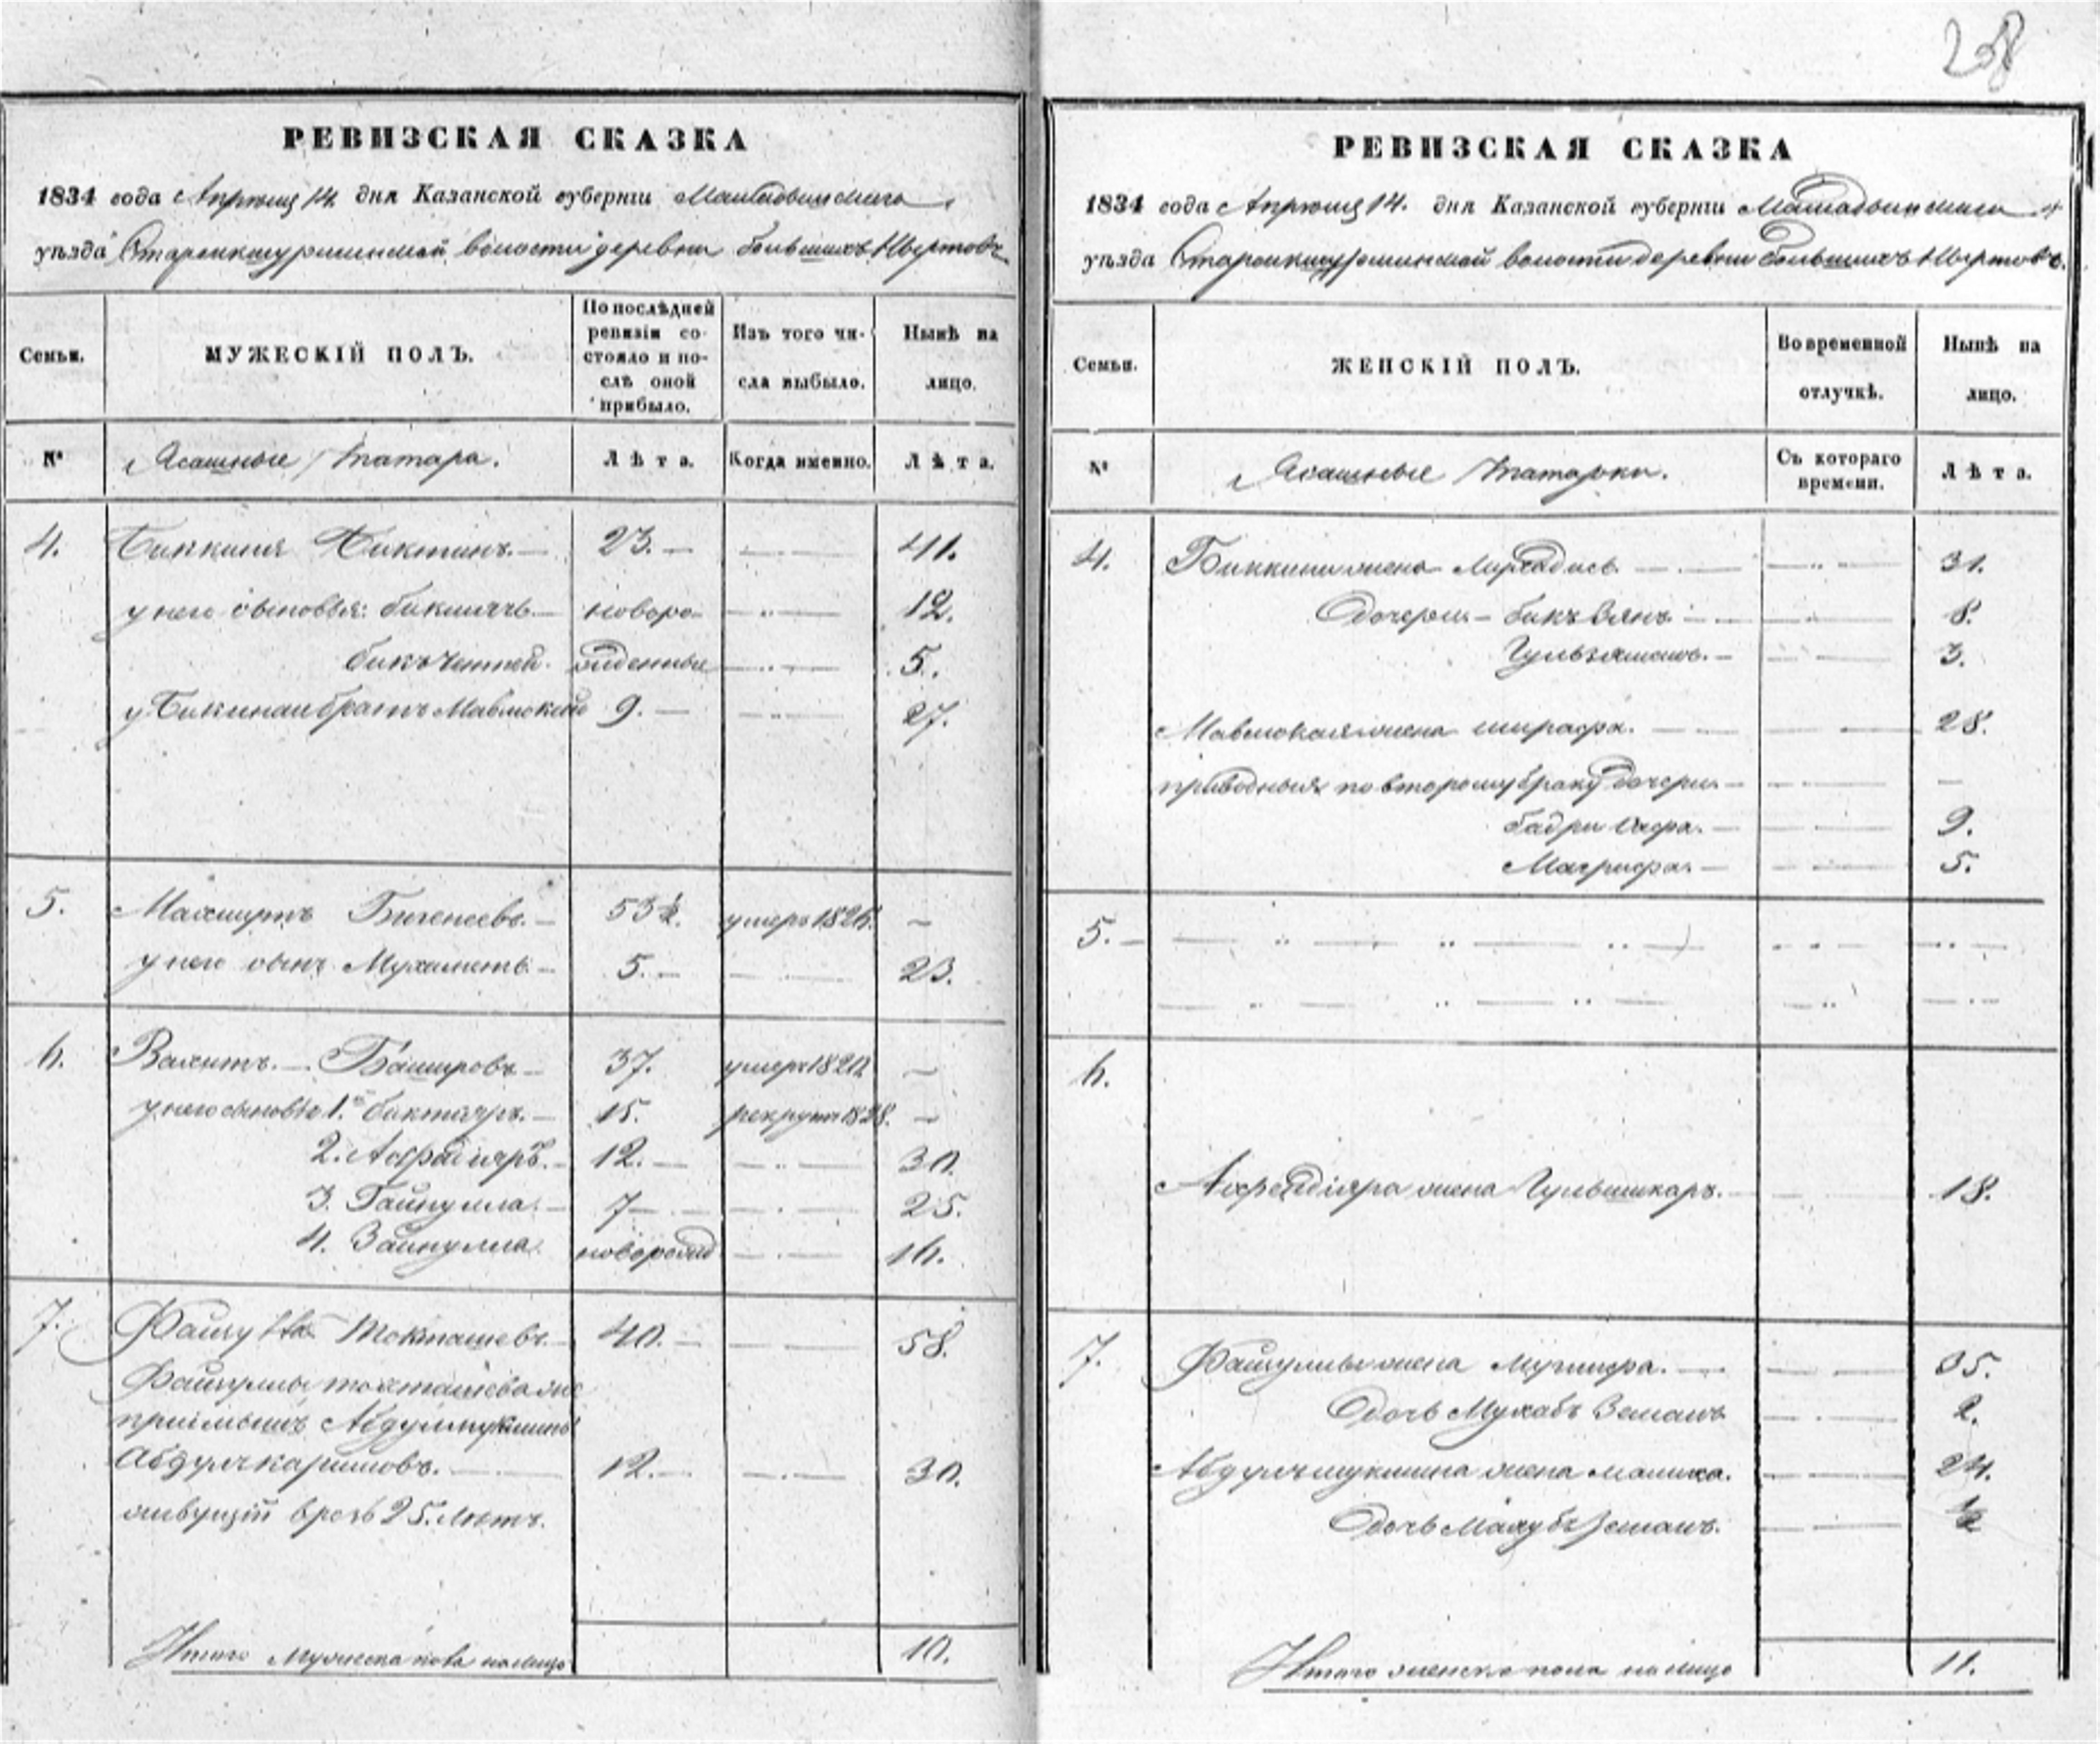 258
РЕВИЗСКАЯ СКАЗКА
1834 года Апреля 14. дня Казанской губернии Мамадышскаго
уѣзда Волости деревни большихъ Ныртовъ
Семьи.
МУЖЕСКІЙ ПОЛЪ.
По послѣдней ревизіи состояло и послѣ оной прибыло.
Изъ того числа выбыло.
Нынѣ на лицо.
№
Ясашные Татара.
Лѣта.
Когда именно.
Лѣта.
4. Биккиня Биктинъ. 23. 41.
у него сыновья: бикмячь новоро- 12.
бикъчентей. жденные 5.
у Бикинаи братъ Мавлюкай 9. 27.
5. Махмутъ Бигенеевъ. 53½. умеръ 1826.
у него сынъ Мухаметь 5. 23.
6. Вахитъ Башировъ 37. умеръ 1820
у него сыновья 1.й биктяръ. 15. рекрутъ 1828.
2. 12. 30.
3. Гайнулла. 7 25.
4. Зайнулла. новорожд 16.
7. Файзулла Токташевъ 40. 58.
Файзуллы тохташева же
пріимышъ
Абдулкаримовъ. 12. 30.
живущій врозь 25. лѣтъ.
Итого Мужеска пола налицо 10.
РЕВИЗСКАЯ СКАЗКА
1834 года Апреля 14. дня Казанской губерніи Мамадышскаго
уѣзда волости деревни большихъ Ныртовъ.
Семьи.
ЖЕНСКІЙ ПОЛЪ.
Во временной отлучкѣ.
Нынѣ на лицо.
№
Ясашные Татарки.
Съ котораго времени.
Лѣта.
4. Биккини жена 31.
Дочери бикъ Зянъ 8.
3.
Мавлюкая жена шарафа. 28.
приводныя по второму браку дочери
бадри Сафа. 9.
Магрифа. 5.
5.
6.
жена Гульшикаръ. 18.
7. Файзуллы жена 35.
Дочь Мухабъ Земалъ 2.
жена малика. 24.
Дочь Махубъ Земалъ. ½
Итого женска пола налицо 11.